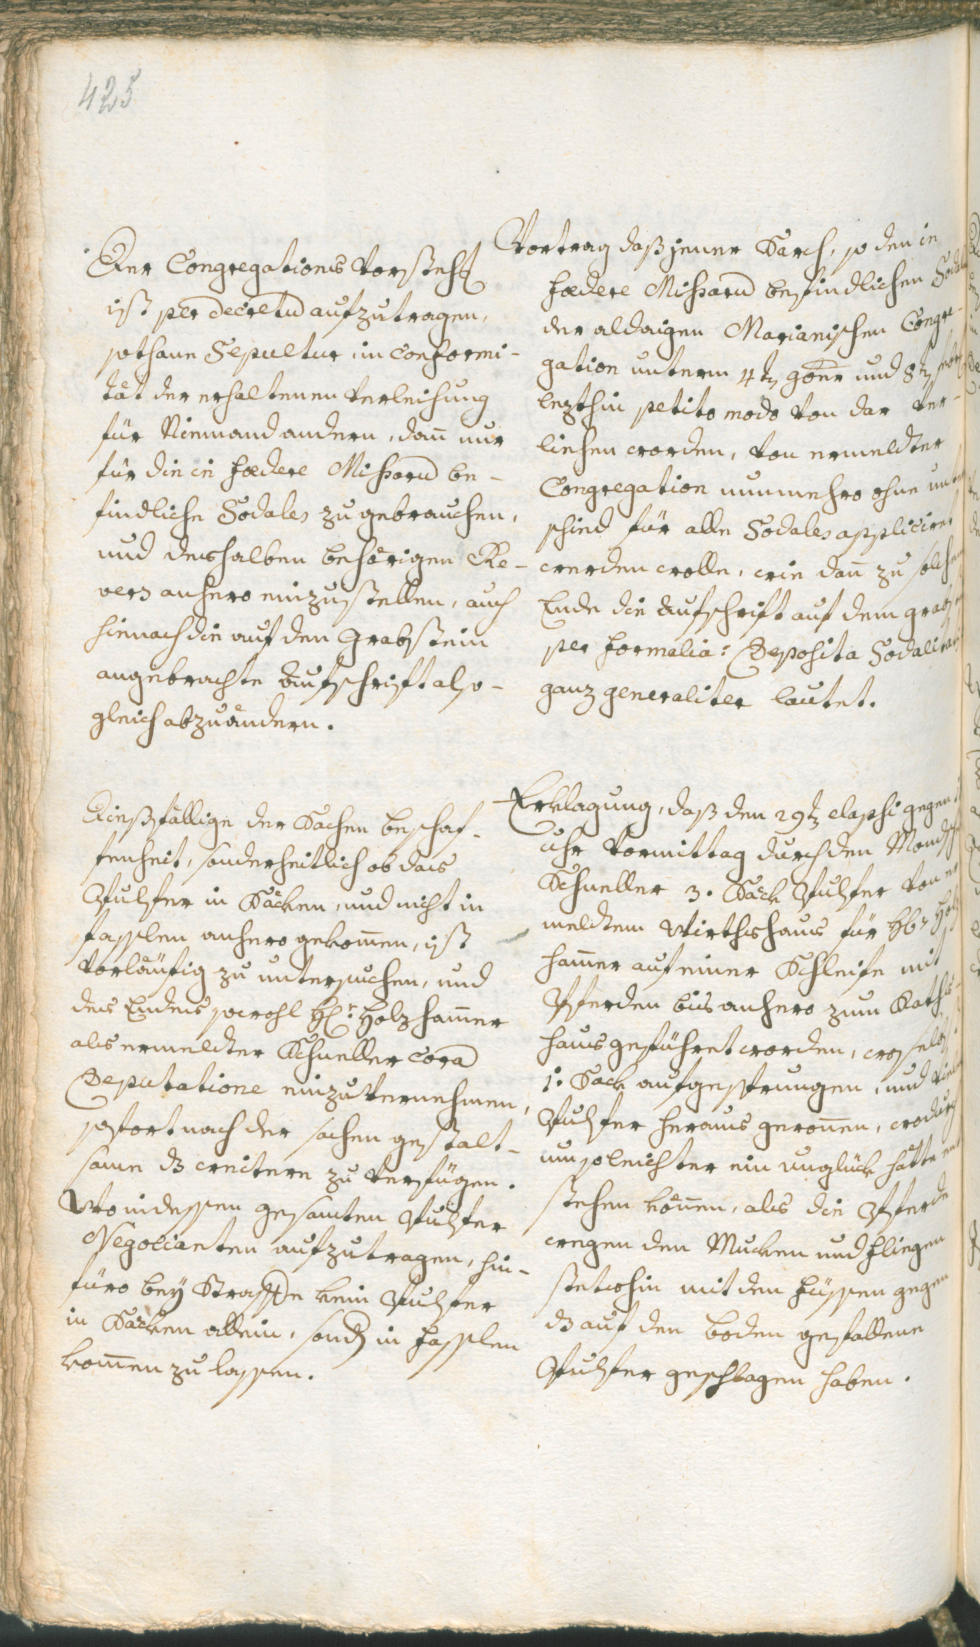 425
Der Congregations Vorstehg
ist per decretū aufzutragen,
sothane Sepultur, in conformi-
tät der erhaltenen Verleichung
für Niemand andern, dan̄ nur
für die in foedere Missarū be-
findliche Sodales zu gebrauchen,
und desshalben behörigen Re-
vers anhero einzustellen, auch
hienach die auf den Grabstein
angebrachte Aufschrift also-
gleich abzuändern.
Vortrag daß jener Sarch, so den in
foedere Missarū befindlichen
der aldaigen Marianischen Congre-
gation unterm 4t, und 8t,
lezthin petito modo von dar ver-
liehen worden, von ermeldter
Congregation nunmehro ohne
schied für alle Sodales appliciret
werden wolle, wie dan̄ zu solchem
Ende die Aufschrift auf dem
per formalia: Deposita
ganz generaliter lautet.
Dießfällige der Sachen beschaf-
fenheit, sonderheitlich ob das
Pulfer in Säcken, und nicht in
Fasslen anhero gekom̄en, ist
vorläufig zu untersuchen, und
des Endens sowohl H: Holzham̄er
als ermeldter Schneller corā
Deputatione einzuvernehmen,
sofort nach der sachen gestalt-
same dz weitere zu verfügen.
Wo indessen gesamten Pulfer
Negocianten aufzutragen, hin-
füro bey Straffe kein Pulfer
in Säcken allein, sond in Fasslen
kom̄en zu lassen.
Erklagung, daß den 29t elapsi gegen
uhr Vormittag durch den
Schneller 3. Säck Pulfer von
meldtem Wirthshaus für H
ham̄er auf einer Schleife mit
Pferden bis anhero zum Raths-
haus geführet worden, wo
1. Sack aufgesprungen, und
Pulfer heraus geron̄en, wodurch
um so leichter ein unglück hätte
stehen kön̄en, als die Pferde
wegen den Mucken und Fliegen
stetshin mit den Füssen gegen
dz auf den boden gefallene
Pulfer geschlagen haben.